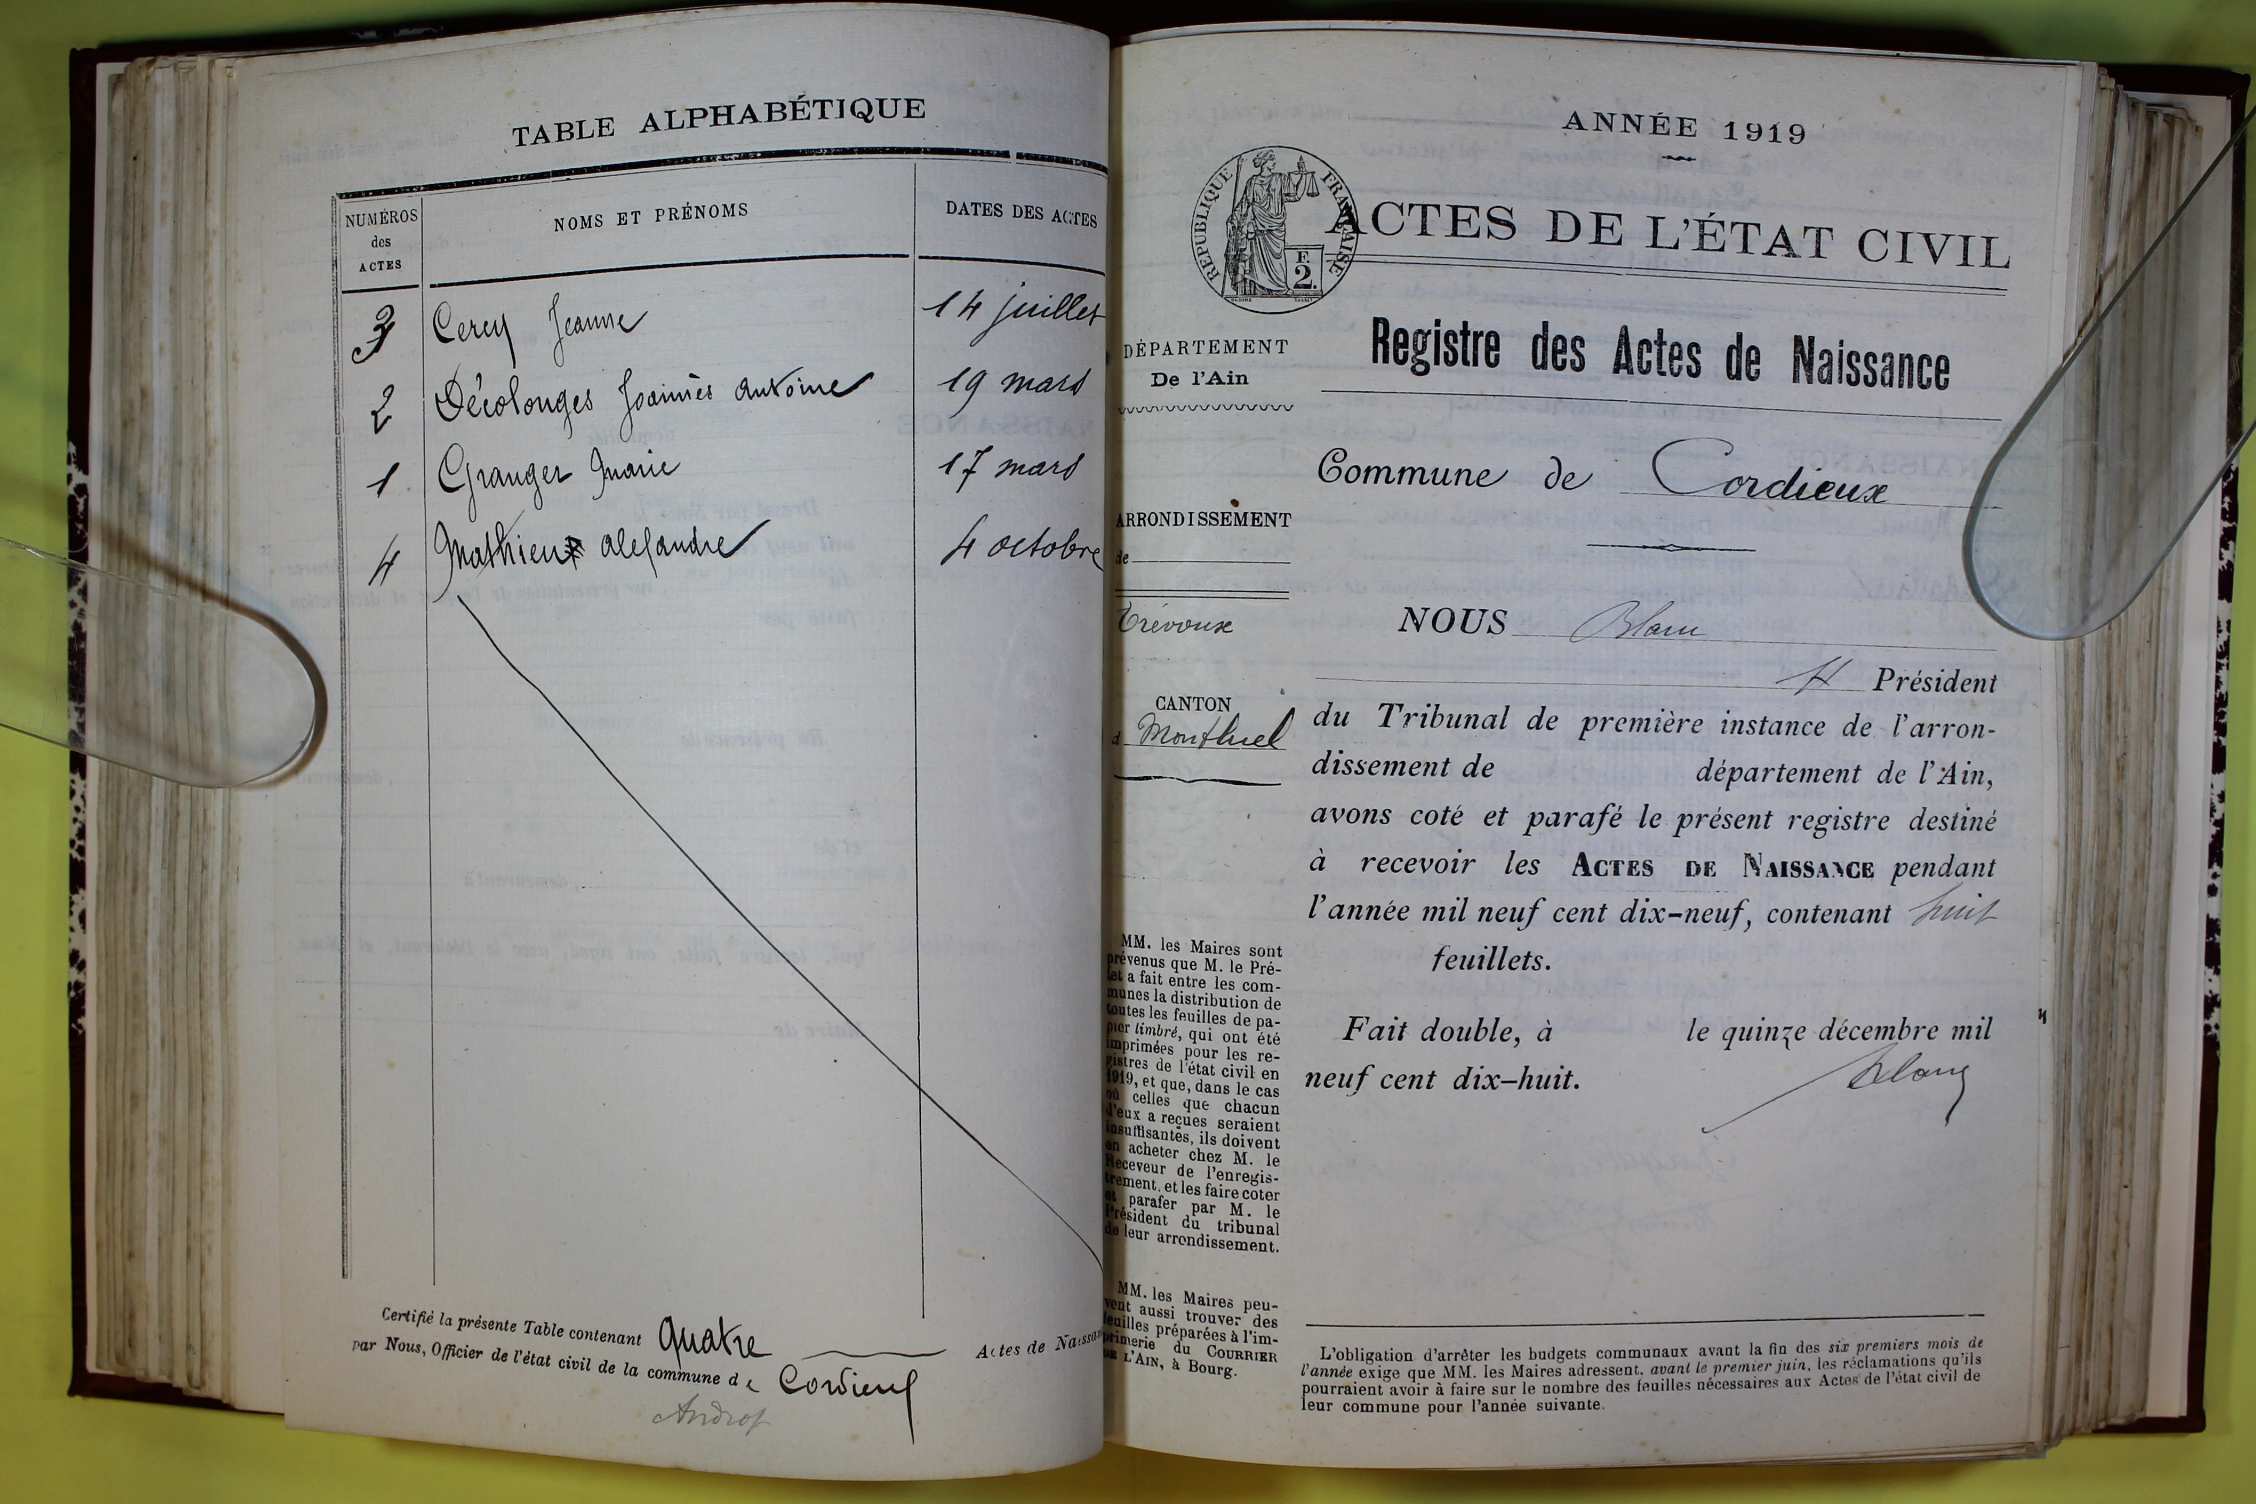 TABLE ALPHABÉTIQUE
NUMÉROS
des
ACTES
NOMS ET PRÉNOMS
DATES DES ACTES
3 Cercy Jeanne 14 juillet
2 Décolonges Joannès antoine 19 mars
1 Granger Marie 17 mars
4 Mathieux alexandre 4 octobre
Certifié la présente Table contenant Quatre Actes de Naissan
par Nous, Officier de l'état civil de la commune de Cordieux
ANNÉE 1919
RÉPUBLIQUE FRANÇAISE
F.
2.
ACTES DE L'ÉTAT CIVIL
DÉPARTEMENT
De l'Ain
ARRONDISSEMENT
de
Trévoux
CANTON
d Montluel
MM. les Maires sont
prévenus que M. le Pré-
fet a fait entre les com-
munes la distribution de
toutes les feuilles de pa-
pier timbré, qui ont été
imprimées pour les re-
gistres de l'état civil en
1919, et que, dans le cas
où celles que chacun
d'eux a reçues seraient
insuffisantes, ils doivent
en acheter chez M. le
Receveur de l'enregis-
trement, et les faire coter
et parafer par M. le
Président du tribunal
de leur arrondissement.
MM. les Maires peu-
vent aussi trouver des
feuilles préparées à l'im-
primerie du COURRIER
DE L'AIN, à Bourg.
Registre des Actes de Naissance
Commune de Cordieux
NOUS Blanc
Président
du Tribunal de première instance de l'arron-
dissement de département de l'Ain,
avons coté et parafé le présent registre destiné
à recevoir les ACTES DE NAISSANCE pendant
l'année mil neuf cent dix-neuf, contenant huit
feuillets.
Fait double, à le quinze décembre mil
neuf cent dix-huit.
Blanc
L'obligation d'arrêter les budgets communaux avant la fin des six premiers mois de
l'année exige que MM. les Maires adressent, avant le premier juin, les réclamations qu'ils
pourraient avoir à faire sur le nombre des feuilles nécessaires aux Actes de l'état civil de
leur commune pour l'année suivante.